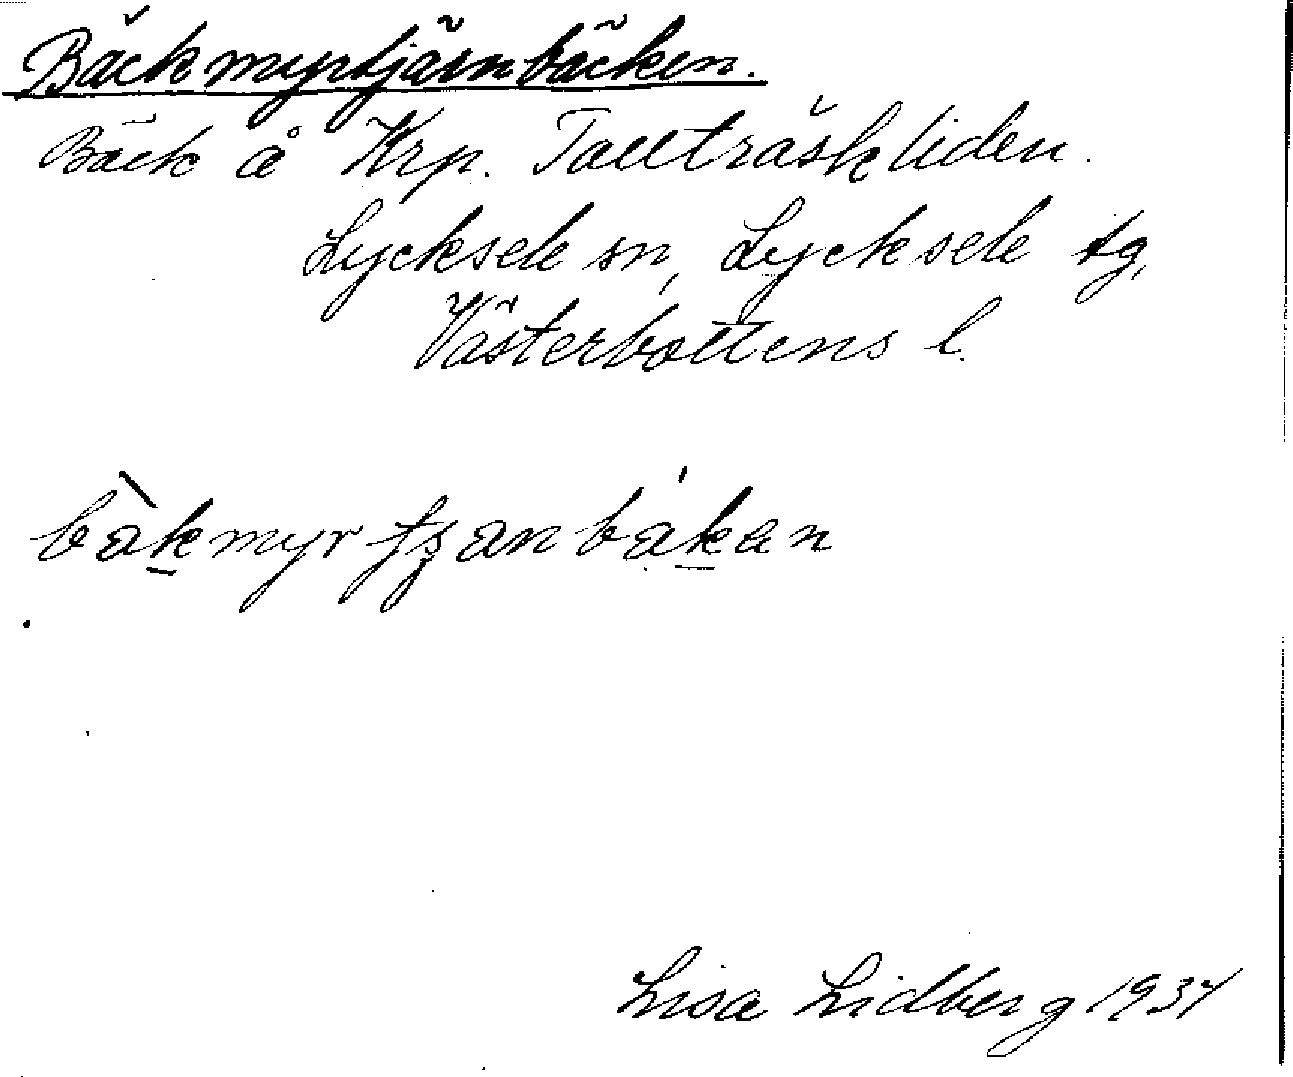 Bäckmyrtjärnbäcken.
Bäck å Krp. Tallträskliden.
Lycksele sn, Lycksele tg,
Västerbottens l.
Lisa Lidberg 1937